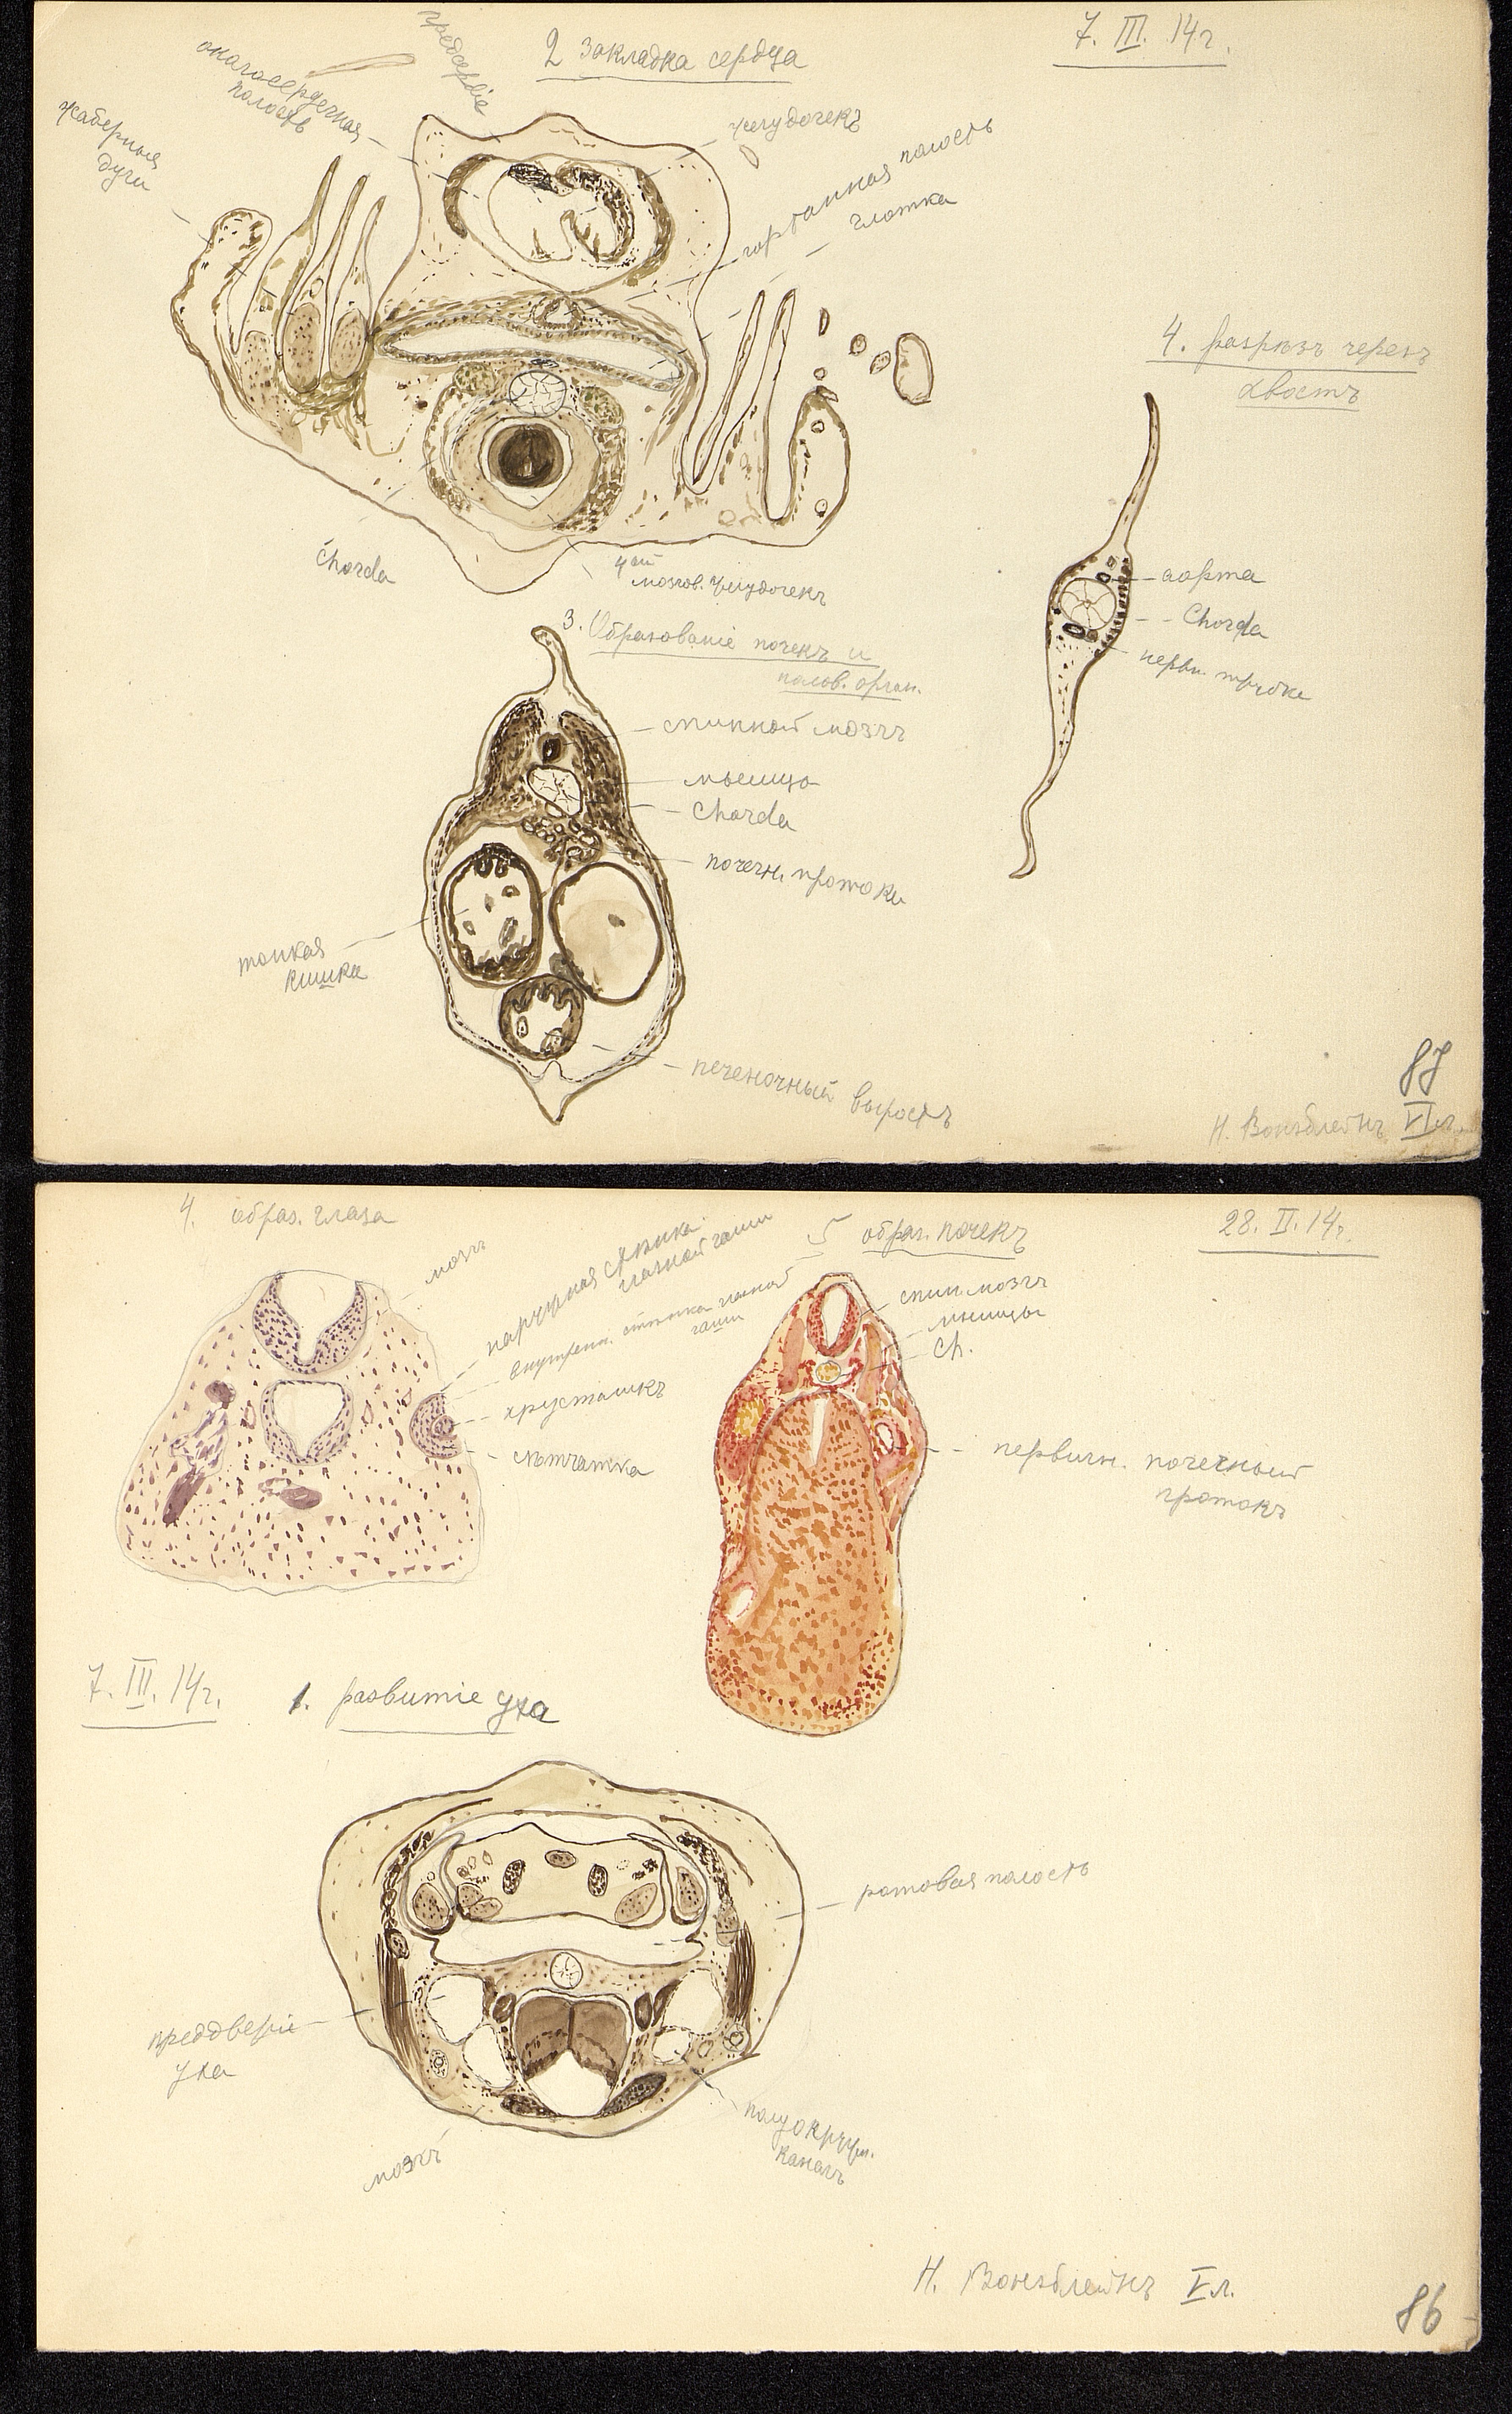 2 закладка сердца
7. III. 14 г.
околосердечная
полость
предсердіе
жаберныя
дуги
желудочекъ
гортанная полость
глотка
Chorda
4ый
мозгов. желудочекъ
4. разрѣзъ черезъ
хвостъ
аорта
Chorda
нервн. трубка
3. Образованіе почекъ и
полов. орган.
спинной мозгъ
мышцы
Chorda
почечн. протоки
тонкая
кишка
печеночный выростъ
87
Н. Вонсблейнъ VI л.
4. образ. глаза
мозгъ
наружная стѣнка
глазной чаши
внутрен. стѣнка глазной
чаши
хрусталикъ
сѣтчатка
5 образ. почекъ
28. II. 14 г.
спин. мозгъ
мышцы
Ch.
первичн. почечный
протокъ
7. III. 14 г.
1. развитіе уха
ротовая полость
преддверіе
уха
мозгъ
полукружн.
каналъ
Н. Вонсблейнъ V л.
86